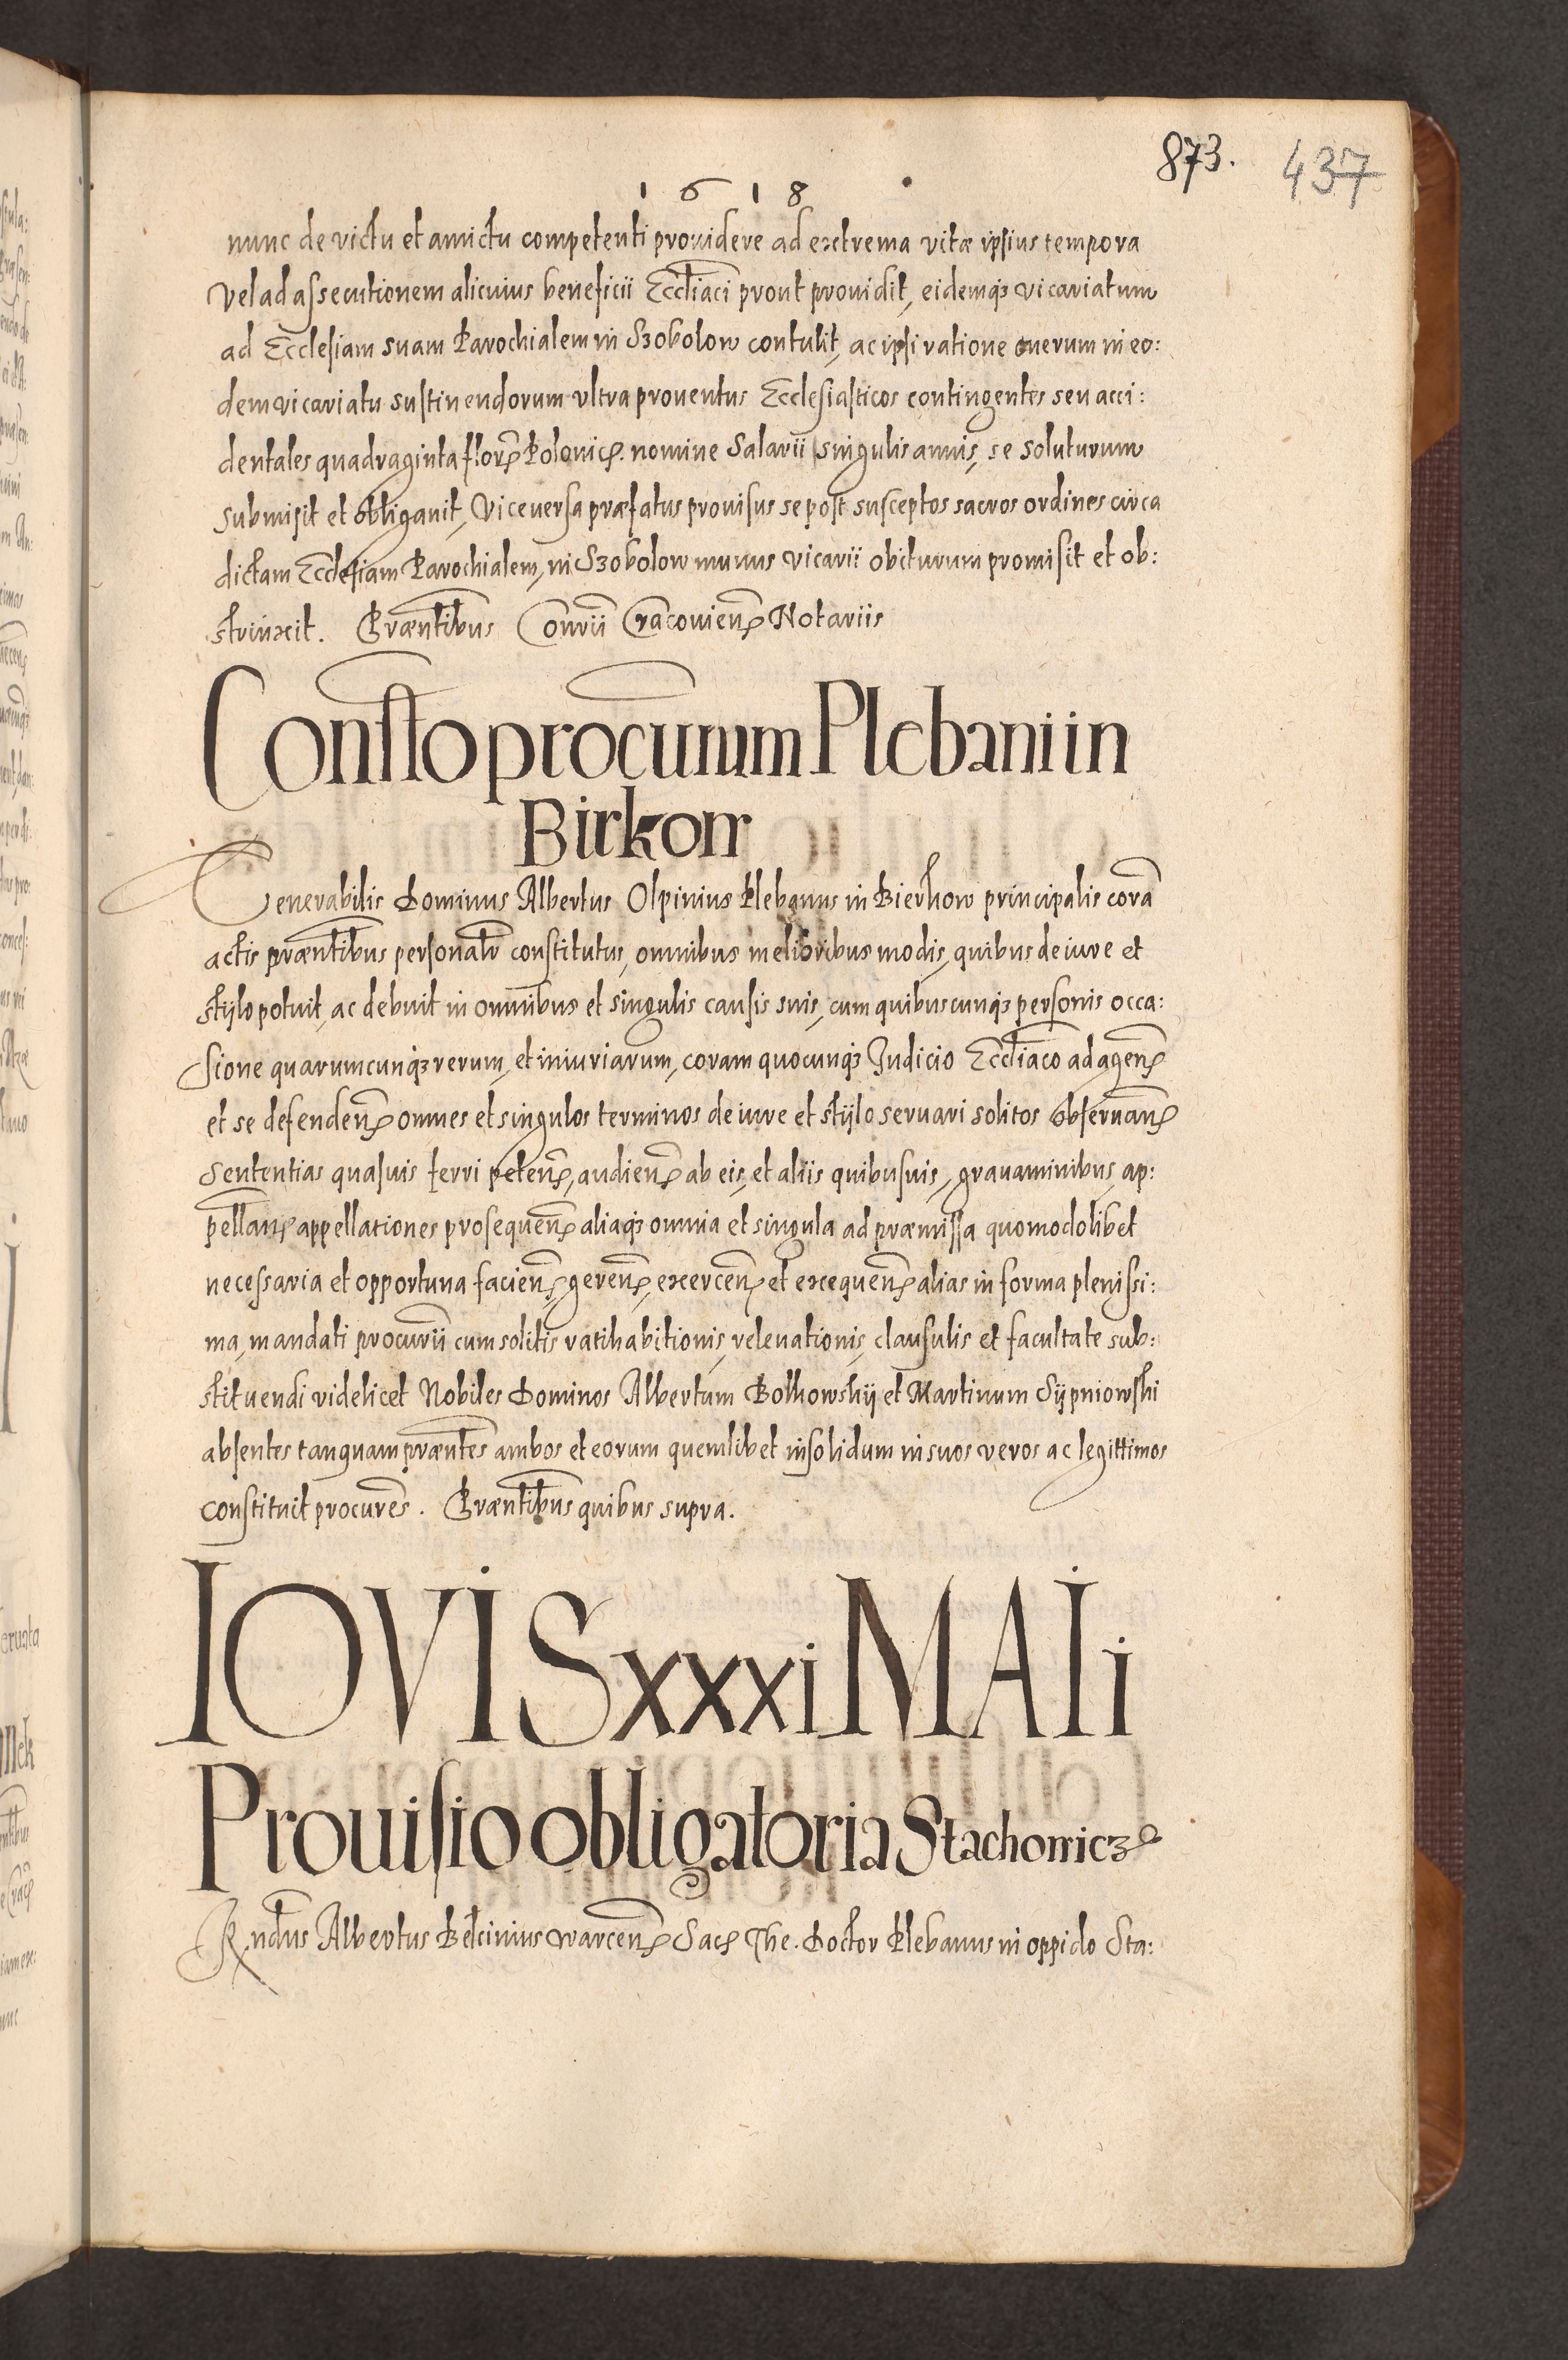 873. 437
1 6 1 8
nunc de victu et amictu competenti prouidere ad extrema vitæ ipsius tempora
Vel ad assecutionem alicuius beneficii Eccłiaci prout prouidit, eidemqꝫ vicariatum
ad Ecclesiam suam Parochialem in Szokolow contulit, ac ipsi ratione onerum in eo:
dem vicariatu sustinendorum vltra prouentus Ecclesiasticos contingentes seu acci:
dentales quadraginta floreꝭ Polonicꝭ. nomine Salarii singulis annis, se soluturum
submisit et obligauit, Viceuersa præfatus prouisus se post susceptos sacros ordines circa
dictam Ecclesiam Parochialem, in Szokolow munus vicarii obiturum promisit et ob:
strinxit. Præntibus Conrii Cracouienꝭ Notariis
Constto procurum Plebani in
Birkow
Venerabilis Dominus Albertus Olpinius Plebanus in Bierkow principalis corã
actis præntibus personałr constitutus, omnibus melioribus modis, quibus de iure et
stylo potuit, ac debuit in omnibus et singulis causis suis, cum quibuscunqꝫ personis occa:
sione quarumcunqꝫ rerum, et iniuriarum, coram quocunqꝫ Judicio Eccłiaco ad agenꝭ
et se defendenꝭ omnes et singulos terminos de iure et stÿlo seruari solitos obseruanꝭ
Sententias quasuis ferri petenꝭ, audienꝭ ab eis, et aliis quibusuis, grauaminibus, ap:
pellanꝭ appellationes prosequenꝭ aliaqꝫ omnia et singula ad præmissa quomodolibet
necessaria et opportuna facienꝭ, gerenꝭ, exercenꝭ et exequenꝭ alias in forma plenissi:
ma, mandati procurii cum solitis ratihabitionis, releuationis, clausulis et facultate sub:
stituendi videlicet Nobiles Dominos Albertum Bolkowskÿ et Martinum Sÿpniowski
absentes tanquam præntes ambos et eorum quemlibet insolidum in suos veros ac legittimos
constituit procures. Præntibus quibus supra.
IOVIS xxxi MAIi
Prouisio obligatoria Stachowiczꝭ
Rndus Albertus Belcinius warcenꝭ Sacꝭ The. Doctor Plebanus in oppido Sta: